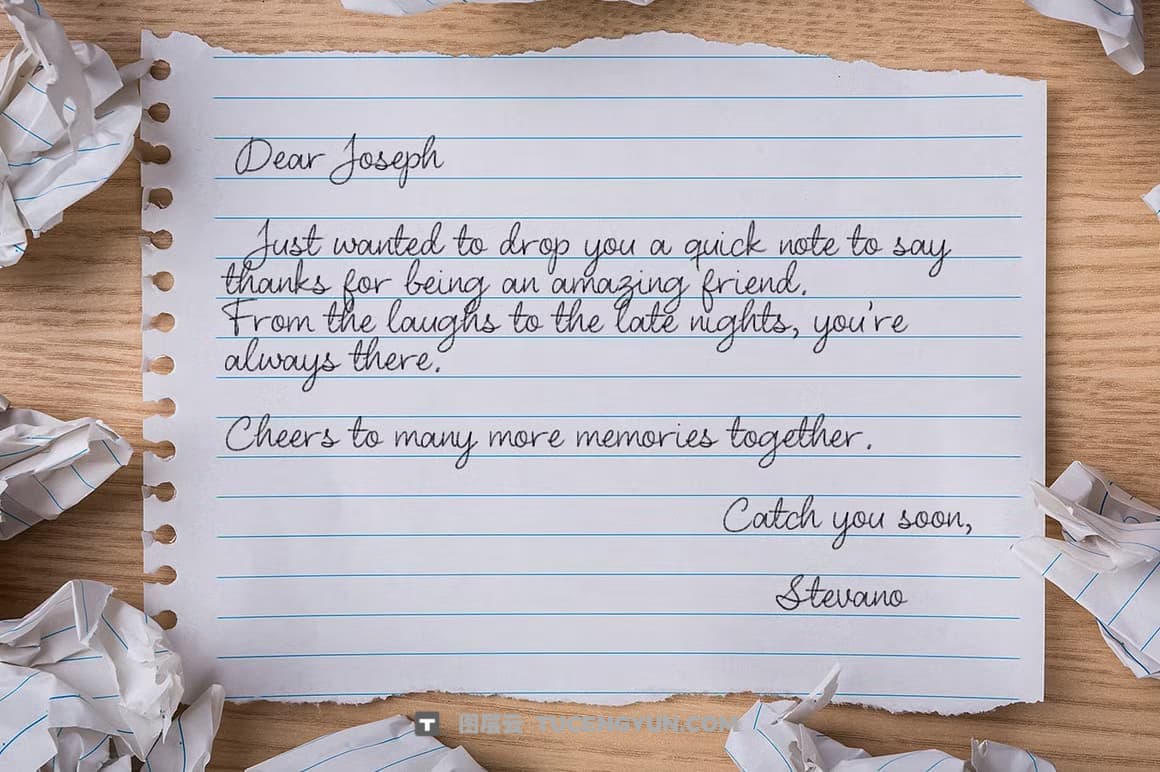 Dear Joseph
Just wanted to drop you a quick note to say
thanks for being an amazing friend.
From the laughs to the late nights, you're
always there.
Cheers to many more memories together.
Catch you soon,
Stevano
T 图层云 TUCENGYUN.COM